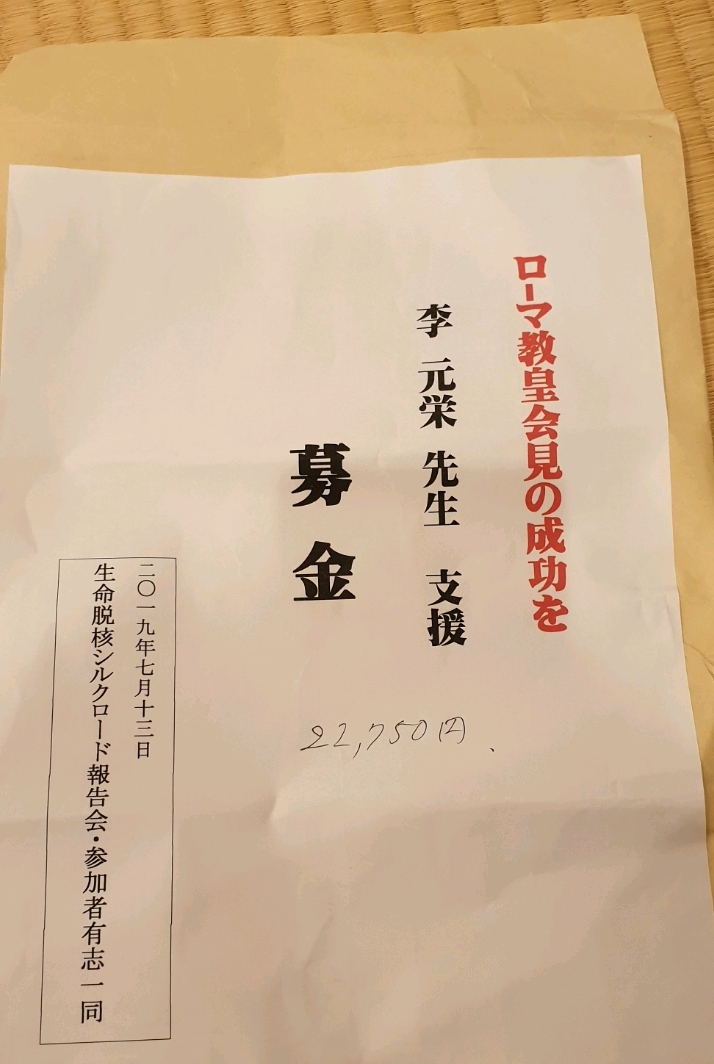 ローマ教皇会見の成功を
李 元栄 先生 支援
募 金
22,750円.
二〇一九年七月十三日
生命脱核シルクロード報告会・参加者有志一同